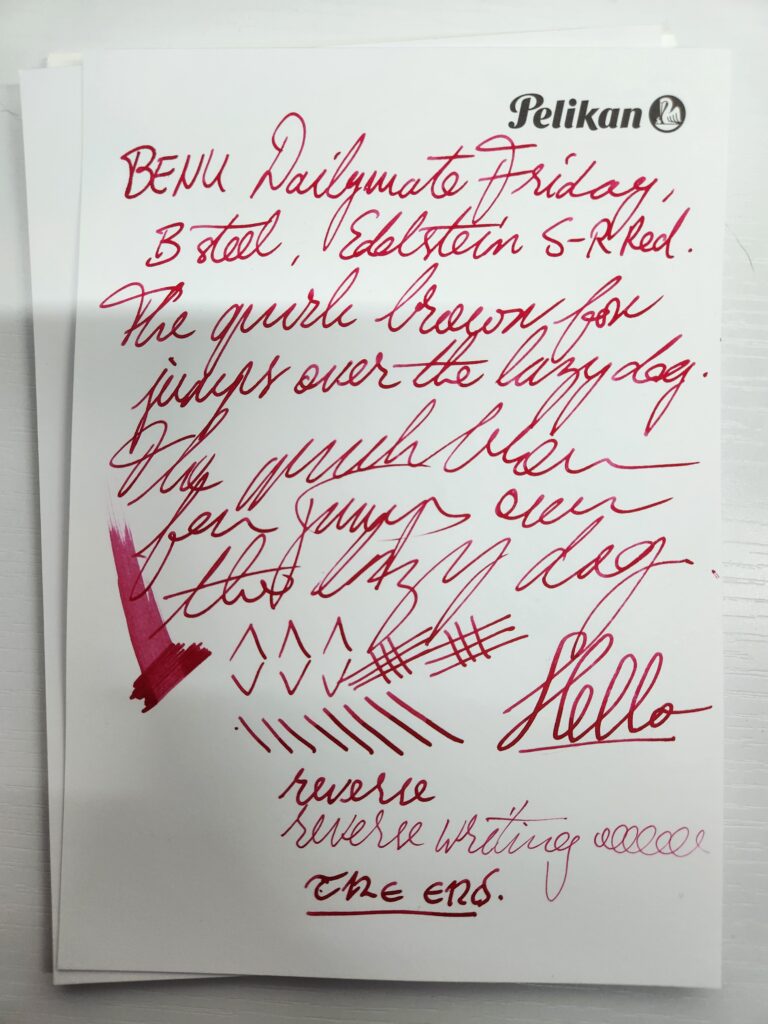 Pelikan
BENU Dailymate Friday,
B steel, Edelstein S-R Red.
The quick brown fox
jumps over the lazy dog.
The quick brown
fox jumps over
the lazy dog.
Hello
reverse
reverse writing
THE END.